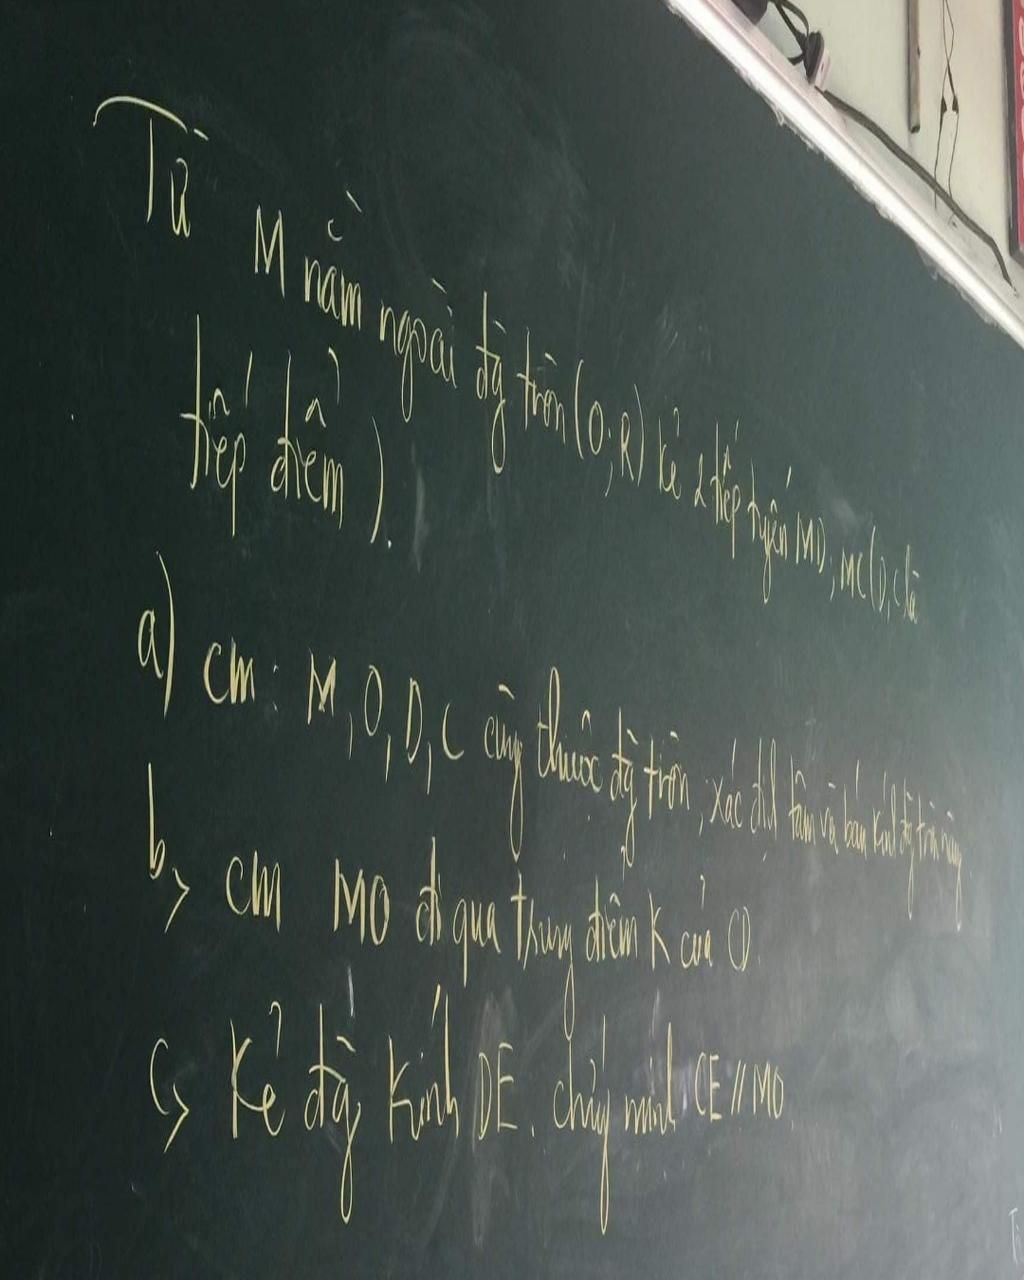 Từ M nằm ngoài đg tròn (O; R) kẻ 2 tiếp tuyến MD, MC (D, C là
tiếp điểm ).
a) cm : M, O, D, C cùng thuộc đg tròn, xác định tâm và bán kính đg tròn này.
b> cm MO đi qua trung điểm K của CD.
c> Kẻ đg kính DE. chứng minh CE // MO.